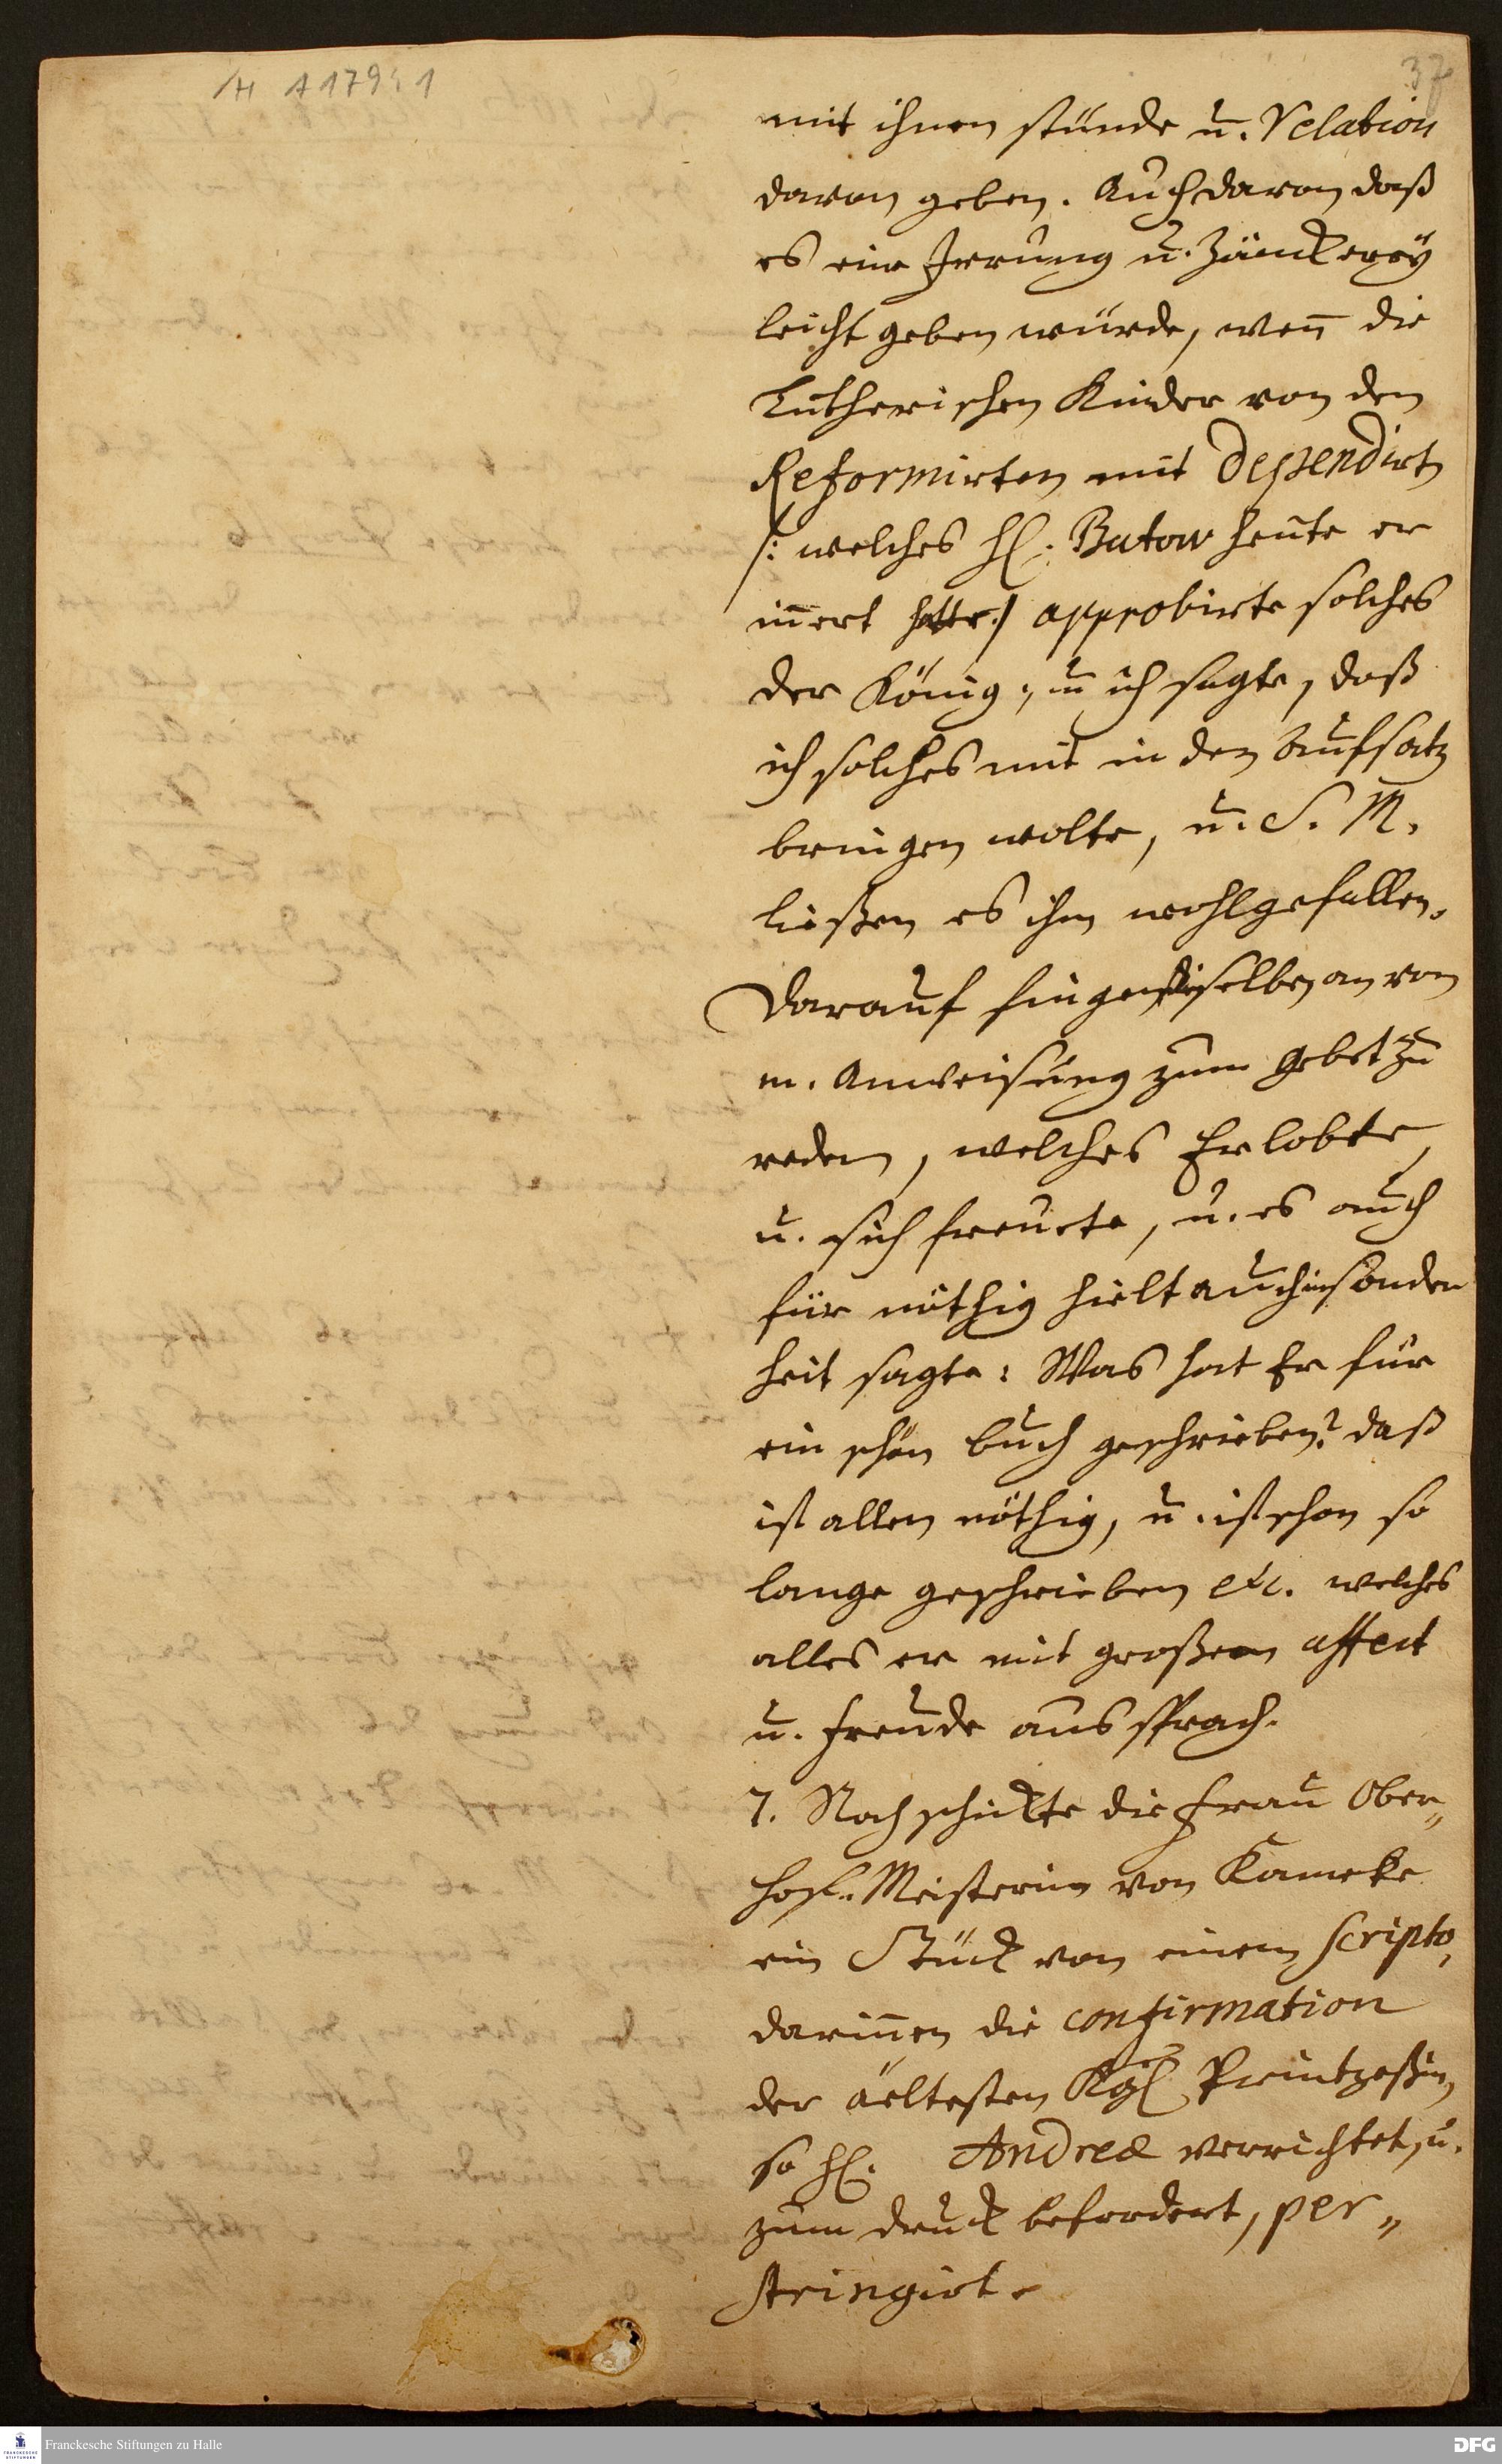 H A179:1
37
mit ihnen stünde u. Relation
davon geben. Auch davon daß
es eine Irrung u. Zänckereÿ
leicht geben würde, wen̄ die
Lutherischen Kinder von den
Reformirten mit dependirtn
/: welches H. Butow heute er
in̄ert hatte:/ approbirte solches
der König; u ich sagte, daß
ich solches mit in den Aufsatz
bringen wolte, u. S. M.
ließen es ihm wohlgefallen.
Darauf fingen dieselben an von
m. Anweisung zum Gebet zu
reden, welches Er lobte,
u. sich freuete, u. es auch
für nöthig hielt auch insonder
heit sagte: Was hat Er für
ein schön buch geschrieben? daß
ist allen nöthig, u. ist schon so
lange geschrieben etc. welches
alles er mit großem affect
u. freude aussprach.
7. Noch schickte die Frau Ober„
hof-Meisterin von Kameke
ein Stück von einem scripto,
darin̄en die confirmation
der äeltesten Kgl Printzeßin,
so H. Andreæ verrichtet, u.
zum druck befordert, per„
stringirt.
Franckesche Stiftungen zu Halle
DFG